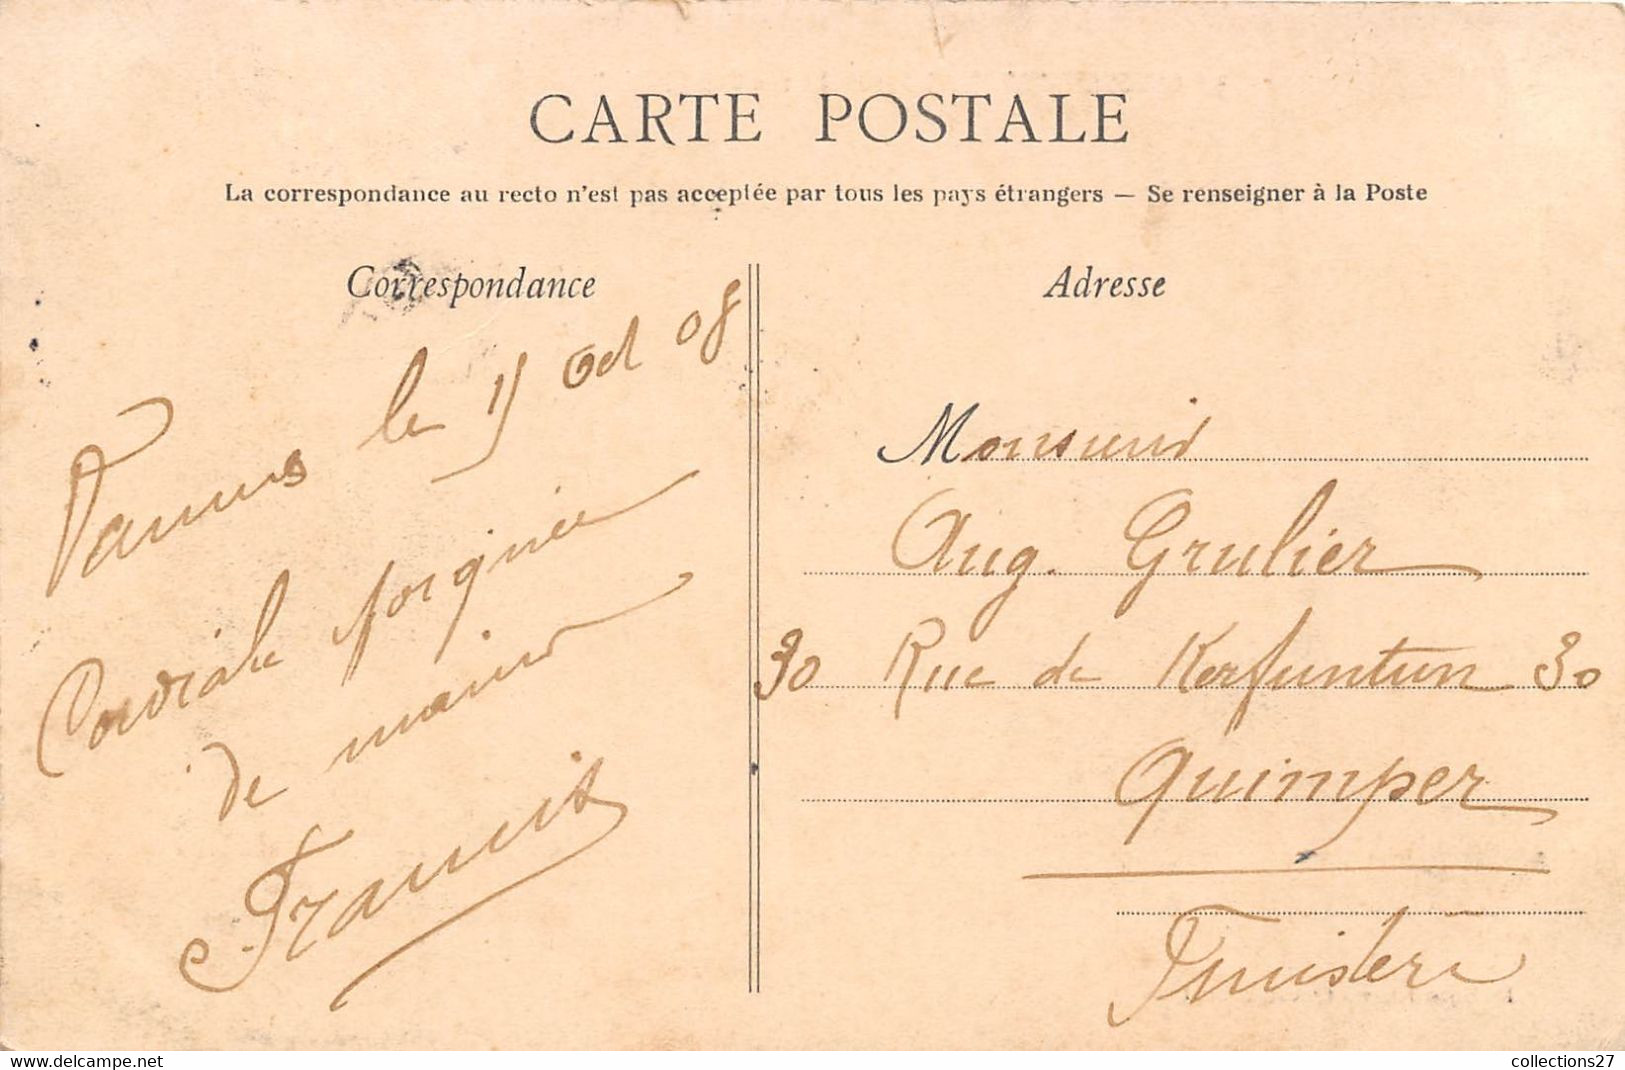 CARTE POSTALE
La correspondance au recto n'est pas acceptée par tous les pays étrangers — Se renseigner à la Poste
Correspondance
Adresse
Vannes le 15 Oct 08
Cordiale poignée
de main
Francis
Monsieur
Aug. Grulier
30 Rue de Kerfuntun 30
Quimper
Finistère
delcampe.net
collections27